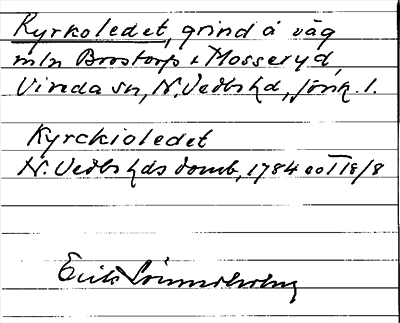 Kyrkoledet, grind å väg
mln Brostorp o Mosseryd,
Vireda sn, N. Vedbo hd, Jönk. l.
Kyrckioledet
N. Vedbo hds domb, 1784 00 I 18/8
Erik